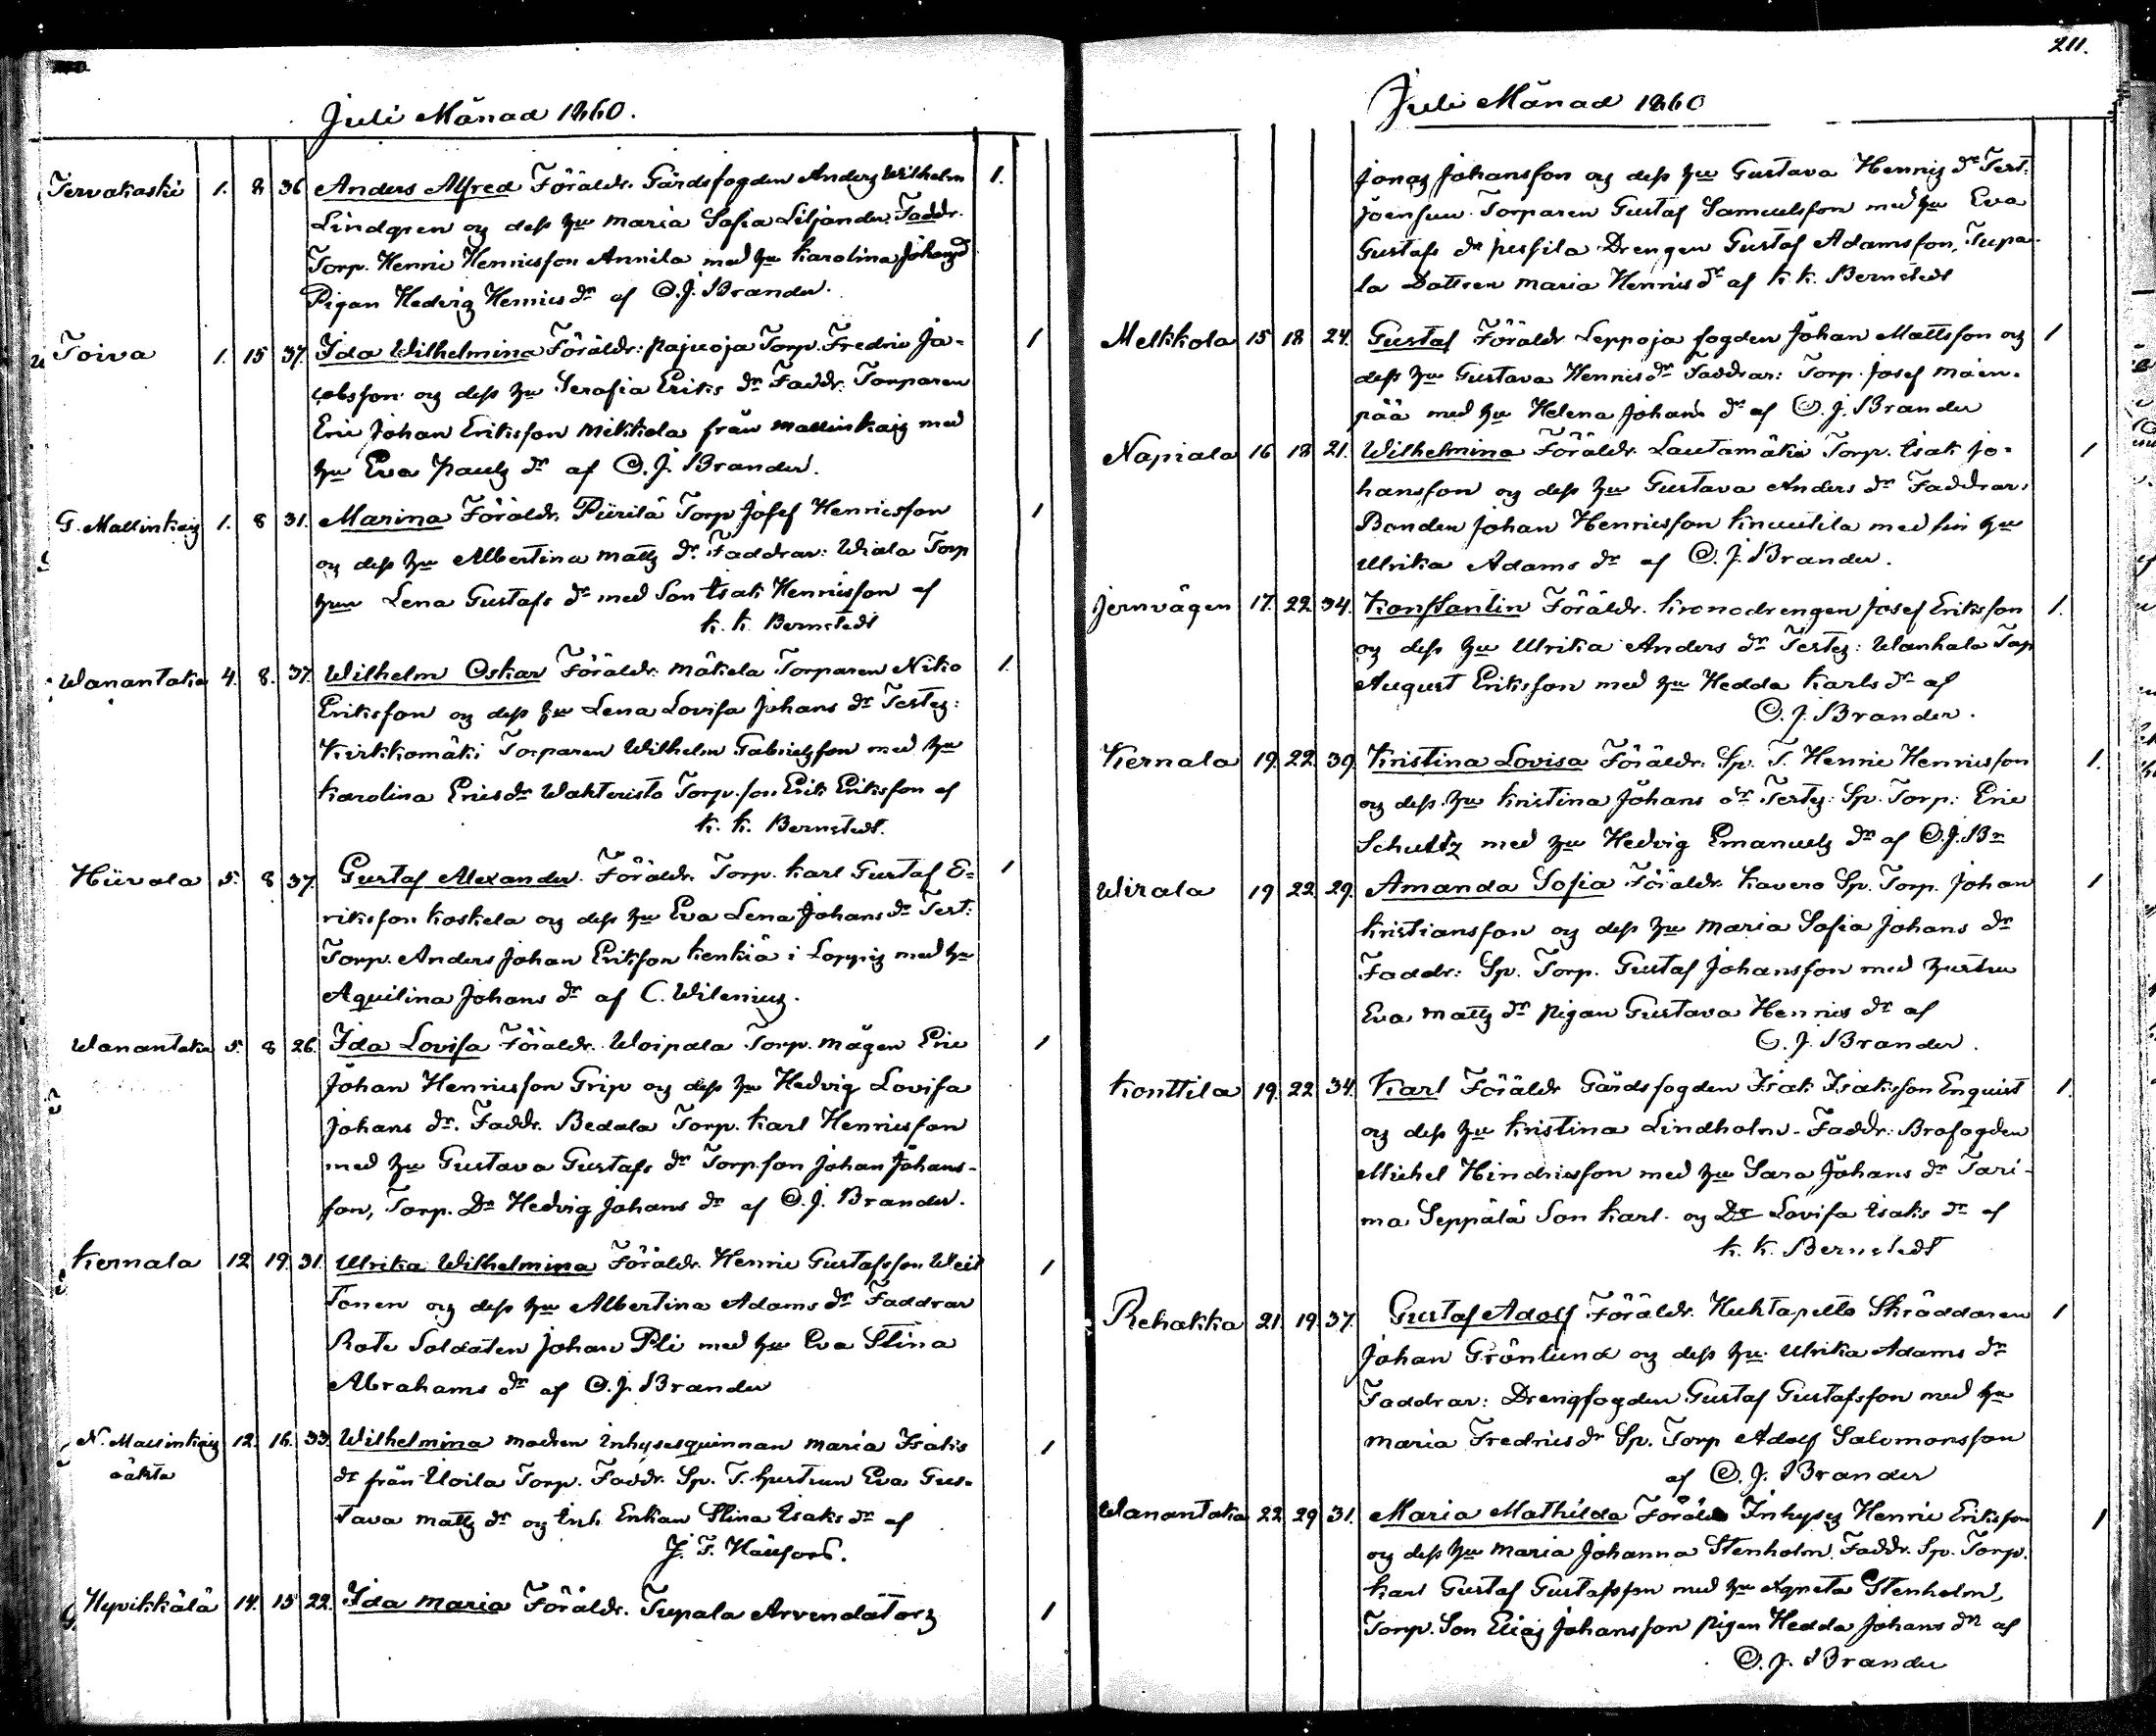 Juli Månad 1860.
Tervakoski 1. 8 36 Anders Alfred Föräldr. Gårdsfogden Anders Wilhelm 1.
Lindgren og dess hu Maria Sofia Liljander. Faddr.
Torp. Henric Henricsson Annila med hu Karolina Johansd
Pigan Hedvig Henrics dr af O.J. Brander.
Toiva 1. 15 37. Ida Wilhelmina Föräldr: Pajuoja Torp. Fredric Ja- 1
cobsson og dess hu Serafia Eriks dr Faddr. Torparen
Eric Johan Eriksson Mikkola från Mallinkais med
hu Eva Pauls dr af O.J. Brander.
G. Mallinkais 1. 8 31. Marina Föräldr. Piirilä Torp Josef Henricsson 1
og dess hu Albertina Matts dr. Faddrar: Wiala Torp
hun Lena Gustafs dr med Son Isak Henricsson af
K. K. Bernstedt
Wanantaka 4. 8. 37. Wilhelm Oskar Föräldr. Mäkela Torparen Niko 1.
Eriksson og dess hu Lena Lovisa Johans dr Testes:
Kirkkomäki Torparen Wilhelm Gabrielsson med hu
Karolina Ericsdr Wahteristo Torp. son Erik Eriksson af
K. K. Bernstedt.
Hiivola 5. 8 37. Gustaf Alexander. Föräldr. Torp. Karl Gustaf E= 1
riksson Koskela og dess hu Eva Lena Johans dr Test:
Torp. Anders Johan Eriksson Kenkiä i Loppis med hu
Aquilina Johans dr af C. Wilenius.
Wanantaka 5. 8 26. Ida Lovisa Föräldr. Woipala Torp. mågen Eric 1
Johan Henricsson Grip og dess hu Hedvig Lovisa
Johans dr. Faddr. Bedala Torp. Karl Henricsson
med hu Gustava Gustafs dr Torp. son Johan Johans-
son, Torp. Dr Hedvig Johans dr af O.J. Brander.
Kernala 12 19. 31. Ulrika Wilhelmina Föräldr. Henric Gustafsson Weit 1
Tonen og dess hu Albertina Adams dr Faddrar
Rote Soldaten Johan Pli med hu Eva Stina
Abrahams dr af O.J. Brander
N. Mallinkais 12. 16. 33. Wilhelmina modren Inhysesquinnan Maria Isaks 1
oäkta dr från Uoila Torp. Faddr. Sp. T. hustrun Eva Gus-
tava Matts dr og Inh. Enkan Stina Isaks dr af
J. F.
Hyvikkälä 14. 15 22. Ida Maria Föräldr. Tupala Arrendators 1
211.
Juli Månad 1860
Jonas Johansson og dess hu Gustava Henrics dr Test:
Joensuu Torparen Gustaf Samuelsson med hu Eva
Gustafs dr Jussila Drengen Gustaf Adamsson, Tupa-
la Dottren Maria Henrics dr af K. K. Bernstedt
Melkkola 15 18 24. Gustaf Föräldr. Leppoja fogden Johan Mattsson og 1
dess hu Gustava Henrics dr Faddrar: Torp. Josef Mäen-
pää med hu Helena Johans dr af O.J. Brander
Napiala 16 18 21. Wilhelmina Föräldr. Lautamäki Torp. Isak Jo- 1
hansson og dess hu Gustava Anders dr Faddrar.
Bonden Johan Henricsson Knuutila med sin hu
Ulrika Adams dr af O.J. Brander.
Jernvägen 17. 22 34. Konstantin Föräldr. Kronodrengen Josef Eriksson 1.
og dess hu Ulrika Anders dr Testes: Wanhala Torp
August Eriksson med hu Hedda Karls dr af
O.J. Brander.
Kernala 19. 22 39. Kristina Lovisa Föräldr. Sp. T. Henric Henricsson 1.
og dess hu Kristina Johans dr Testes: Sp. Torp: Eric
Schultz med hu Hedvig Emanuels dr af O.J. Br
Wirala 19 22 29. Amanda Sofia Föräldr. Kavero Sp. Torp. Johan 1
Kristiansson og dess hu Maria Sofia Johans dr
Faddr: Sp. Torp. Gustaf Johansson med hustru
Eva Matts dr pigan Gustava Henrics dr af
O.J. Brander.
Konttila 19. 22 34. Karl Föräldr Gårdsfogden Isak Isaksson Enquist 1.
og dess hu Kristina Lindholm. Faddr: Brofogden
Michel Hindricsson med hu Sara Johans dr Tari-
ma Seppälä Son Karl og Dr Lovisa Isaks dr af
K. K. Bernstedt
Rehakka 21. 19. 37. Gustaf Adolf Föräldr. Huhtapelto Skräddaren 1
Johan Grönlund og dess hu Ulrika Adams dr
Faddrar: Drengfogden Gustaf Gustafsson med hu
Maria Fredrics dr Sp. Torp Adolf Salomonsson
af O.J. Brander
Wanantaka 22 29 31. Maria Mathilda Föräldr Inhyses Henric Eriksson 1
og dess hu Maria Johanna Stenholm. Faddr. Sp. Torp.
Karl Gustaf Gustafsson med hu Agneta Stenholm,
Torp. Son Elias Johansson pigan Hedda Johans dr af
O.J. Brander